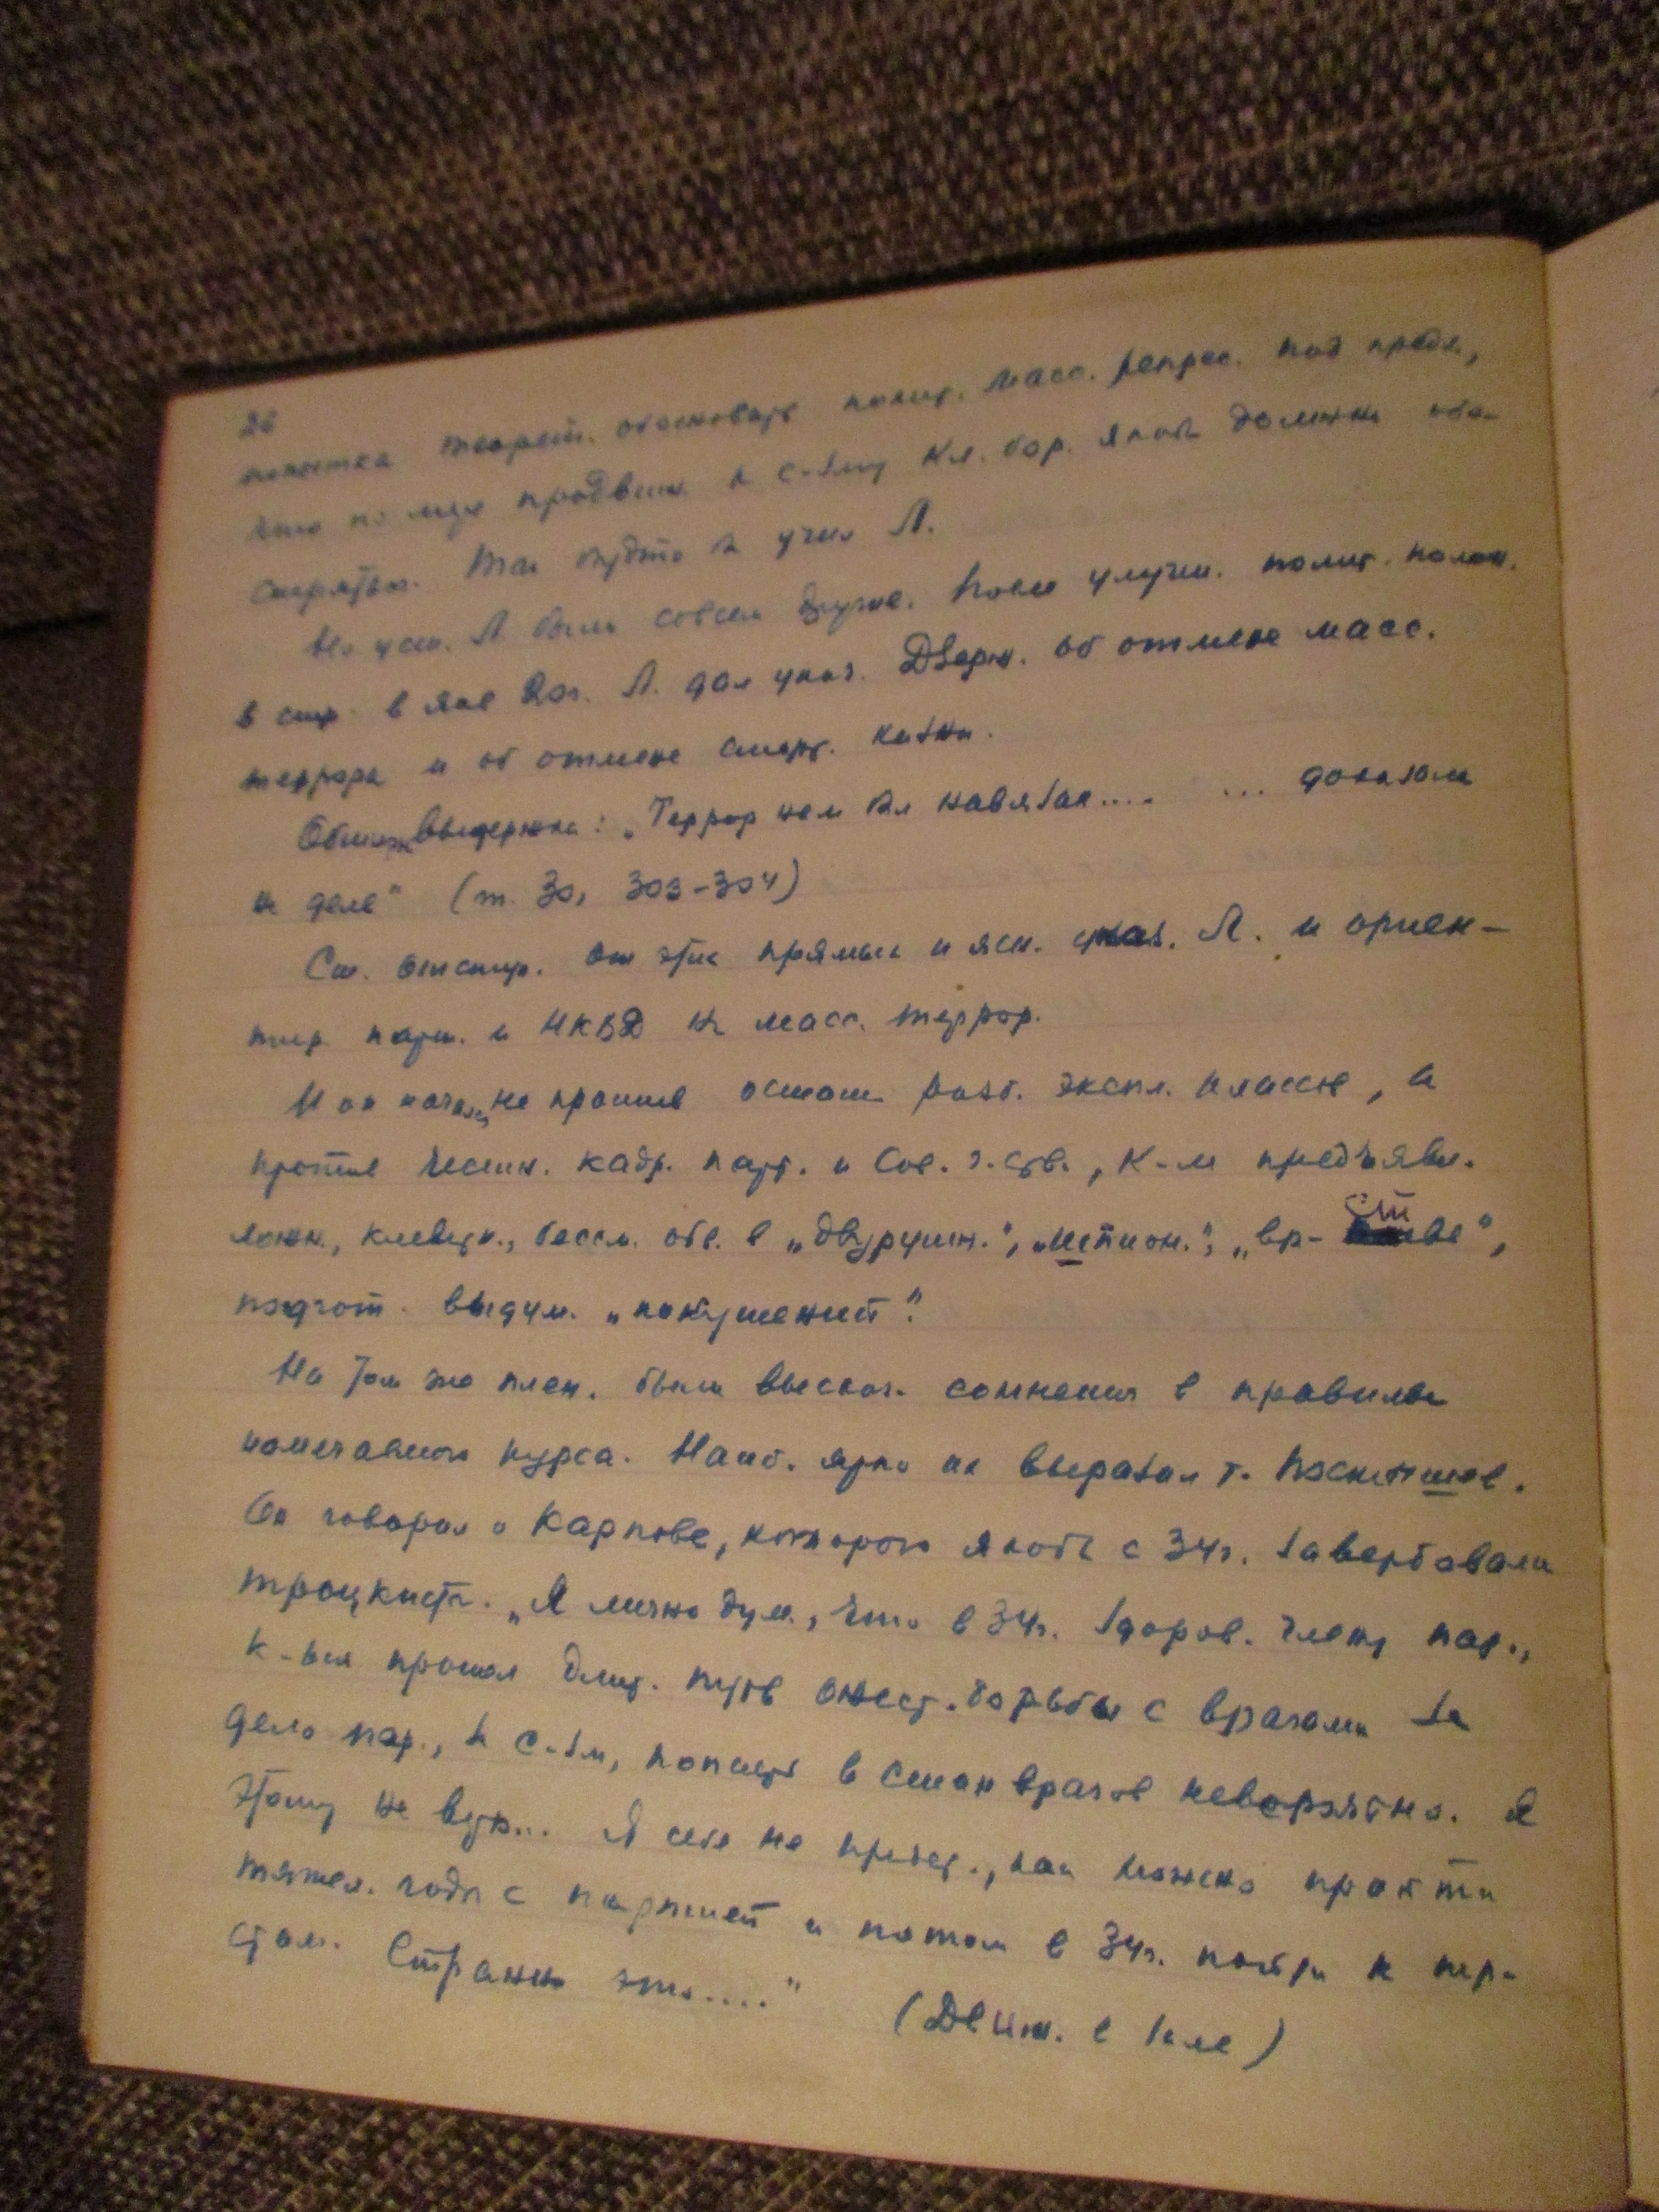 26
попытка теорет. обосновать полит. масс. репрес. под предл.,
что по мере продвиж. к с-зму кл. бор. якобы должна обо-
стряться. Так будто бы учил Л.
На усм. Л. было совсем другое. После улучш. полит. полож.
в стр. в янв 20г. Л. дал указ. Дзерж. об отмене масс.
террора и об отмене смерт. казни.
Обширн выдержка: „Террор нам был навязан.... ... доказали
на деле" (т. 30, 303-304)
Ст. отступ. от этих прямых и ясн. указ. Л. и ориен-
тир парт. и НКВД на масс. террор.
И он начался не против остат. разб. экспл. классов, а
против честн. кадр. парт. и Сов. г-ств., к-м предъявл.
ложн., клеветн., бессм. обв. в „двурушн.", „шпион.", „вр-стве",
подгот. выдум. „покушений".
На том же плен. были высказ. сомнения в правильн
намечавшего курса. Наиб. ярко их выразил т. Постышев.
Он говорил о Карпове, которого якобы с 34г. завербовали
троцкисты. „Я лично дум., что в 34г. здоров. члену пар.,
к-рый прошел длит. путь ожест. борьбы с врагами за
дело пар., за с-зм, попасть в стан врагов невероятно. Я
этому не верю... Я себе не предст., как можно пройти
тяжел. годы с партией и потом в 34г. пойти к тро-
цким. Странно это...."
(Движ. в зале)